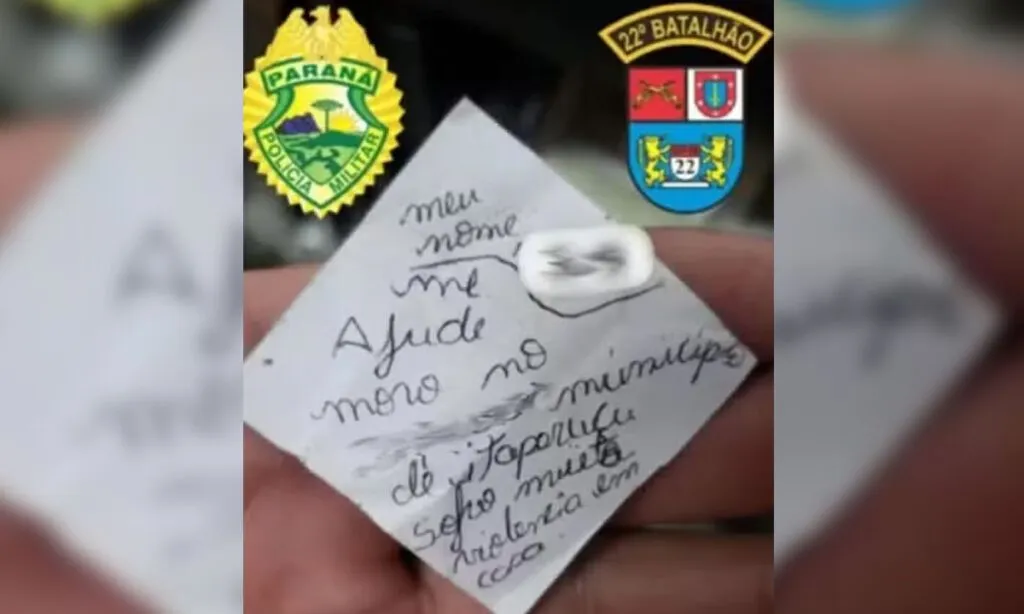 PARANÁ
POLÍCIA MILITAR
22º BATALHÃO
22
meu
nome,
me
Ajude
moro no
municipio
de itaparuçu
sofro muito
violencia em
casa.